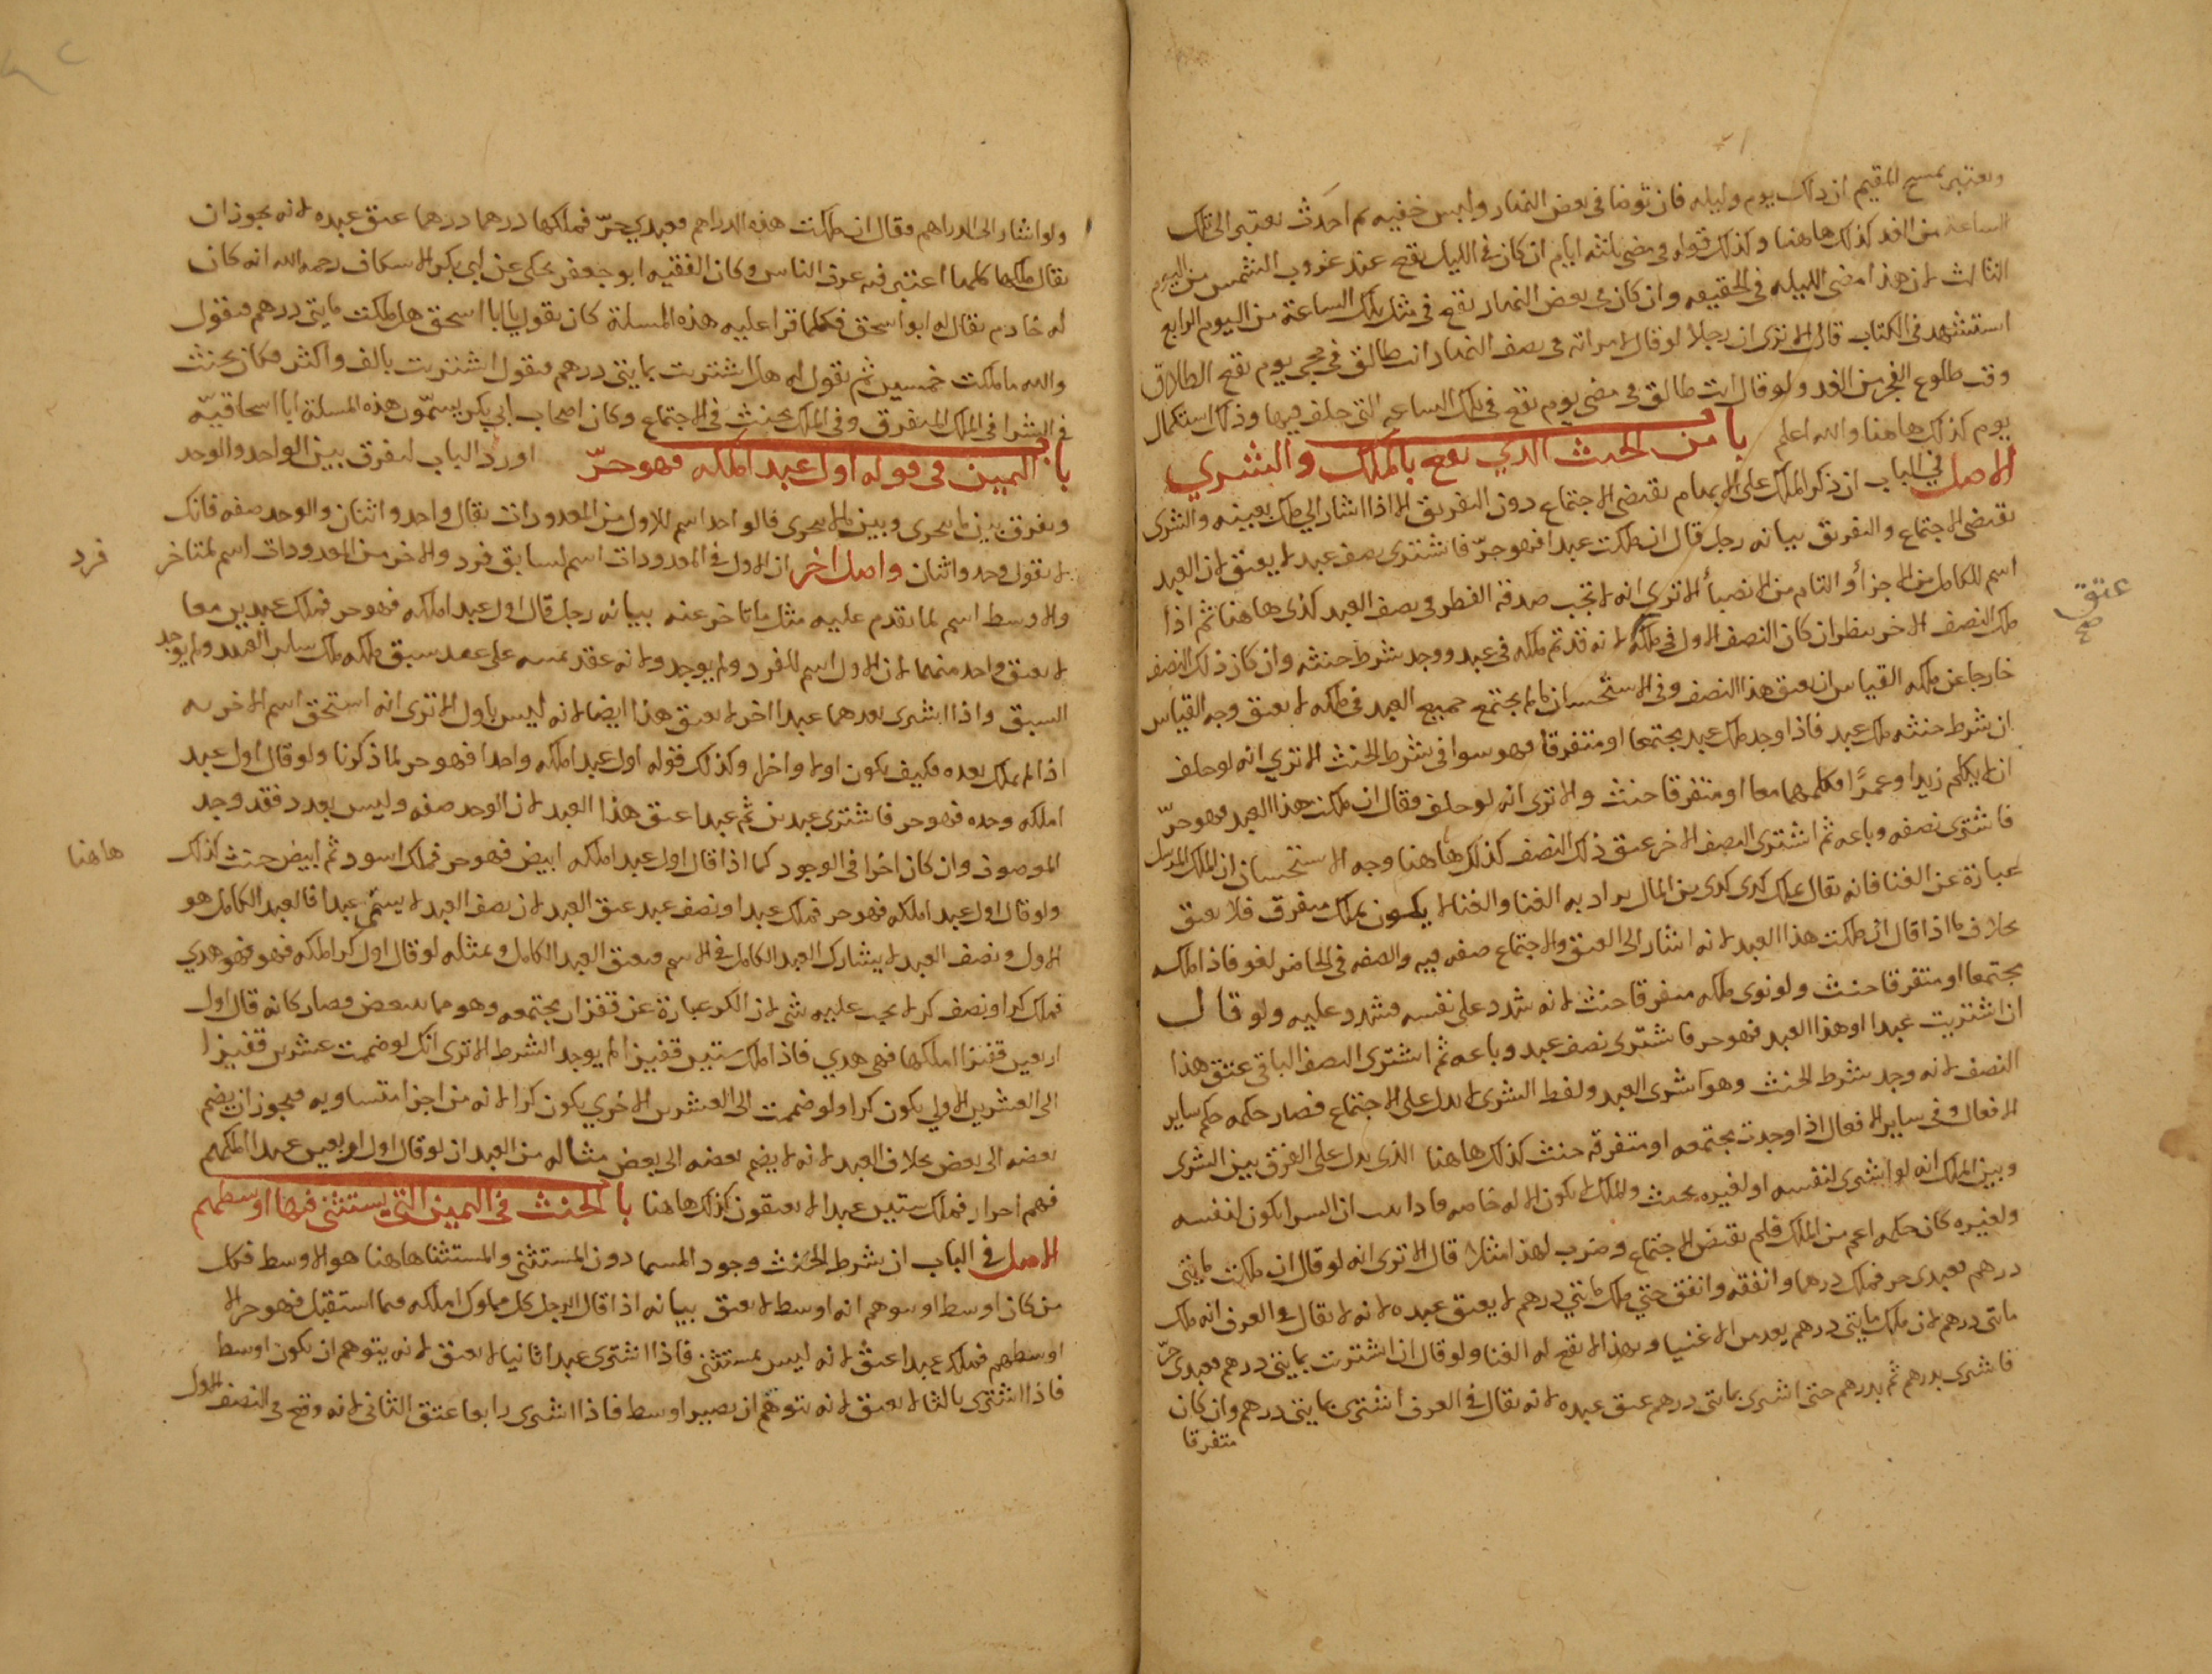 ويعتبر بمسح المقيم ان ذلك يوم وليله فان توضا في بعض النهار ولبس خفيه ثم احدث يعتبر الى تلك
الساعة من الغد كذلك هاهنا وكذلك قوله في مضى ثلثه ايام ان كان في الليل يقع عند غروب الشمس من اليوم
الثالث لان هذا مضى الليله في الحقيقه وان كان في بعض النهار يقع في مثل تلك الساعة من اليوم الرابع
استشهد في الكتاب قال الا ترى ان رجلا لو قال لامراته في نصف النهار انت طالق في مجى يوم يقع الطلاق
وقت طلوع الفجر من الغد ولو قال انت طالق في مضى يوم يقع في تلك الساعه التي حلف فيها وذلك استكمال
يوم كذلك هاهنا والله اعلم باب من الحنث الذي يقع بالملك والشري
الاصل في الباب ان ذكر الملك على الابهام يقتضى الاجتماع دون التفريق الا اذا اشار الى ملك بعينه والشرى
يقتضى الاجتماع والتفريق بيانه رجل قال ان ملكت عبدا فهو حرّ فاشترى نصف عبد لا يعتق لان العبد
اسم للكامل من الاجزأ والتام من الانصبأ الا تري انه لا تجب صدقة الفطر في نصف العبد كذى هاهنا ثم اذا
ملك النصف الاخر ينظر ان كان النصف الاول في ملكه لانه قد تم ملكه في عبد ووجد شرط حنثه وان كان ذلك النصف
خارجا عن ملكه القياس ان يعتق هذا النصف وفي الاستحسان ما لم يجتمع جميع العبد في ملكه لا يعتق وجه القياس
ان شرط حنثه ملك عبد فاذا وجد ملك عبد مجتمعا او متفرقا فهو سوا في شرط الحنث الا تري انه لو حلف
ان لا يكلم زيدا وعمرًا فكلمهما معا او متفرقا حنث والا ترى انه لو حلف فقال ان ملكت هذا العبد فهو حرّ
فاشترى نصفه وباعه ثم اشترى النصف الاخر عتق ذلك النصف كذلك هاهنا وجه الاستحسان ان الملك المرسل
عبارة عن الغنا فانه يقال يملك كدى كدى من المال يراد به الغنا والغنا لا يكون بملك متفرق فلا يعتق
بخلاف ما اذا قال ان ملكت هذا العبد لانه اشار الى العتق والاجتماع صفه فيه والصفه في الحاضر لغو فاذا ملك
مجتمعا او متفرقا حنث ولو نوى ملكه متفرقا حنث لانه شدد على نفسه فشدد عليه ولو قال
ان اشتريت عبدا او هذا العبد فهو حر فاشترى نصف عبد وباعه ثم اشترى النصف الباقى عتق هذا
النصف لانه وجد شرط الحنث وهو شرى العبد ولفظ الشرى لا يدل على الاجتماع فصار حكمه حكم ساير
الافعال وفي ساير الافعال اذا وجدت مجتمعه او متفرقه حنث كذلك هاهنا الذى يدل على الفرق بين الشرى
وبين الملك انه لو اشترى لنفسه او لغيره يحنث والملك لا يكون الا له خاصه فاذا ان الشرا يكون لنفسه
ولغيره كان حكمه اعم من الملك فلم يقتض الاجتماع وضرب لهذا مثلا قال الا ترى انه لو قال ان ملكت مايتى
درهم فعبدى حر فملك درهما وانفقه وانفق حتي ملك مايتي درهم لا يعتق عبده لانه لا يقال في العرف انه ملك
مايتى درهم لان ملك مايتى درهم يعد من الاغنيا وبهذا لا يقع له الغنا ولو قال ان اشتريت بمايتى درهم فعبدى حرّ
فاشترى بدرهم ثم بدرهم حتى اشترى بمايتى درهم عتق عبده لانه يقال في العرف اشترى بمايتى درهم وان كان
متفرقا
عتق
صح
ولو اشار الى الدراهم فقال ان ملكت هذه الدراهم فعبدي حرّ فملكها درهما درهما عتق عبده لانه يجوز ان
يقال ملكها كلها اعتبر فيه عرف الناس وكان الفقيه ابو جعفر يحكى عن ابي بكر الاسكاف رحمه الله انه كان
له خادم يقال له ابو اسحق فكلما قرا عليه هذه المسلة كان يقول يا ابا اسحق هل ملكت مايتى درهم فيقول
والله ما ملكت خمسين ثم يقول له هل اشتريت بمايتى درهم فيقول اشتريت بالف واكثر فكان يحنث
في الشرا في الملك المتفرق وفي الملك يحنث في الاجتماع وكان اصحاب ابي بكر يسمّون هذه المسلة ابا اسحاقيّه
باب اليمين في قوله اول عبد املكه فهو حرّ اورد الباب ليفرق بين الواحد والوحد
ويفرق بين ما يتجزى وبين ما لا يتجزى فالواحد اسم للاول من المعدودات يقال واحد واثنان والوحد صفه فانك
لا تقول وحد واثنان واصل اخر ان الاول في المعدودات اسم لسابق فرد والاخر من المعدودات اسم لمتاخر فرد
والاوسط اسم لما تقدم عليه مثل ما تاخر عنه بيانه رجل قال اول عبد املكه فهو حر فملك عبدين معا
لا يعتق واحد منهما لان الاول اسم للفرد ولم يوجد ولانه عقد يمينه على عبد سبق ملكه ملك ساير العبيد ولم يوجد
السبق واذا اشترى بعدهما عبدا اخر لا يعتق هذا ايضا لانه ليس باول الا ترى انه استحق اسم الاخر به
اذا لم يملك بعده فكيف يكون اولا واخرا وكذلك قوله اول عبد املكه واحدا فهو حر لما ذكرنا ولو قال اول عبد
املكه وحده فهو حر فاشترى عبدين ثم عبدا عتق هذا العبد لان الوحد صفه وليس بعدد فقد وجد
الموصوف وان كان اخرا في الوجود كما اذا قال اول عبد املكه ابيض فهو حر فملك اسود ثم ابيض حنث كذلك هاهنا
ولو قال اول عبد املكه فهو حر فملك عبدا ونصف عبد عتق العبد لان نصف العبد لا يسمّى عبدا فالعبد الكامل هو
الاول ونصف العبد لا يشارك العبد الكامل في الاسم فيعتق العبد الكامل وبمثله لو قال اول كر املكه فهو فهو هدي
فملك كرا ونصف كر لا يجب عليه شى لان الكر عبارة عن قفزان مجتمعه وهو مما يتبعض فصار كانه قال اول
اربعين قفيزا املكها فهى هدي فاذا ملك ستين قفيزا لم يوجد الشرط الا ترى انك لو ضممت عشرين قفيزا
الى العشرين الاولي يكون كرا ولو ضممت الى العشرين الاخري يكون كرا لانه من اجزا متساويه فيجوز ان يضم
بعضه الى بعض بخلاف العبد لانه لا يضم بعضه الى بعض مثاله من العبد ان لو قال اول اربعين عبدا املكهم
فهم احرار فملك ستين عبدا لا يعتقون كذلك هاهنا باب الحنث في اليمين التي يستثنى فيها اوسطهم
الاصل في الباب ان شرط الحنث وجود المسما دون المستثنى والمستثنا هاهنا هو الاوسط فكل
من كان اوسط او توهم انه اوسط لا يعتق بيانه اذا قال الرجل كل مملوك املكه فيما استقبل فهو حر الا
اوسطهم فملك عبدا عتق لانه ليس بمستثنى فاذا اشترى عبدا ثانيا لا يعتق لانه يتوهم ان يكون اوسط
فاذا اشترى ثالثا لا يعتق لانه يتوهم ان يصير اوسط فاذا اشترى رابعا عتق الثانى لانه وقع في النصف الاول